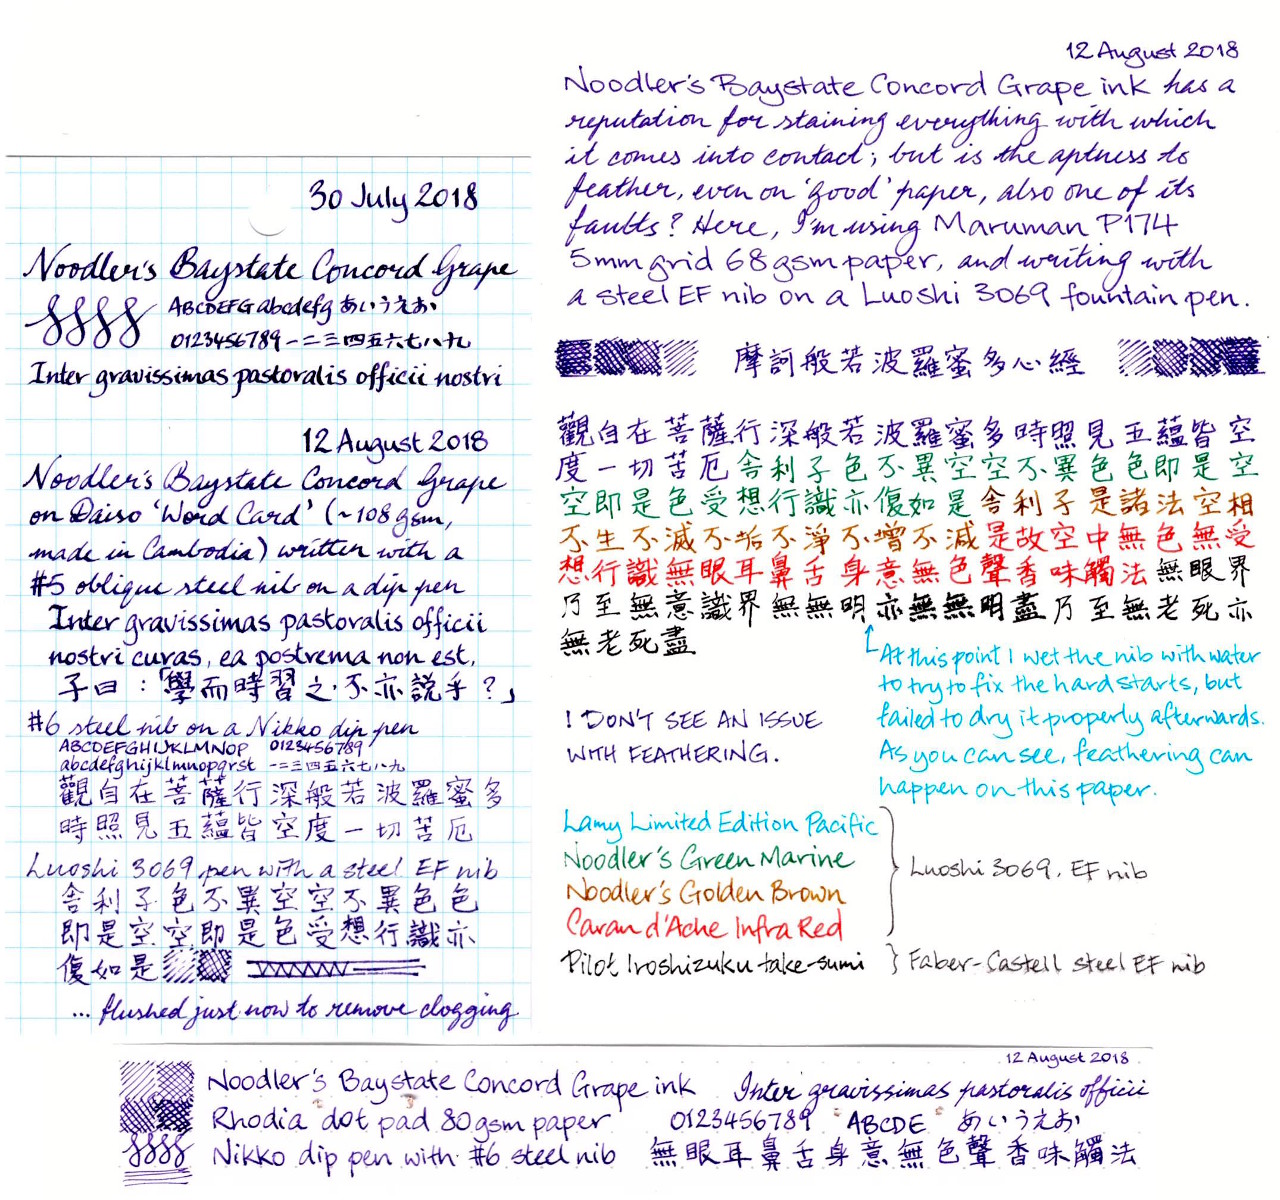 30 July 2018
Noodler's Baystate Concord Grape
ABCDEFG abcdefg あいうえお
0123456789 一二三四五六七八九
Inter gravissimas pastoralis officii nostri
12 August 2018
Noodler's Baystate Concord Grape
on Daiso 'Word Card' (~108gsm,
made in Cambodia) written with a
#5 oblique steel nib on a dip pen
Inter gravissimas pastoralis officii
nostri curas, ea postrema non est,
子曰：「學而時習之，不亦説乎？」
#6 steel nib on a Nikko dip pen
ABCDEFGHIJKLMNOP 0123456789
abcdefghijklmnopqrst 一二三四五六七八九
觀自在菩薩行深般若波羅蜜多
時照見五蘊皆空度一切苦厄
Luoshi 3069 pen with a steel EF nib
舍利子色不異空空不異色色
即是空空即是色受想行識亦
復如是
... flushed just now to remove clogging
12 August 2018
Noodler's Baystate Concord Grape ink has a
reputation for staining everything with which
it comes into contact; but is the aptness to
feather, even on 'good' paper, also one of its
faults? Here, I'm using Maruman P174
5mm grid 68gsm paper, and writing with
a steel EF nib on a Luoshi 3069 fountain pen.
摩訶般若波羅蜜多心經
觀自在菩薩行深般若波羅蜜多時照見五蘊皆空
度一切苦厄舍利子色不異空空不異色色即是空
空即是色受想行識亦復如是舍利子是諸法空相
不生不滅不垢不淨不增不減是故空中無色無受
想行識無眼耳鼻舌身意無色聲香味觸法無眼界
乃至無意識界無無明亦無無明盡乃至無老死亦
無老死盡
At this point I wet the nib with water
to try to fix the hard starts, but
failed to dry it properly afterwards.
As you can see, feathering can
happen on this paper.
I DON'T SEE AN ISSUE
WITH FEATHERING.
Lamy Limited Edition Pacific
Noodler's Green Marine
Noodler's Golden Brown
Caran d'Ache Infra Red
Luoshi 3069, EF nib
Pilot Iroshizuku take-sumi
Faber-Castell steel EF nib
12 August 2018
Noodler's Baystate Concord Grape ink Inter gravissimas pastoralis officii
Rhodia dot pad 80gsm paper 0123456789 ABCDE あいうえお
Nikko dip pen with #6 steel nib 無眼耳鼻舌身意無色聲香味觸法